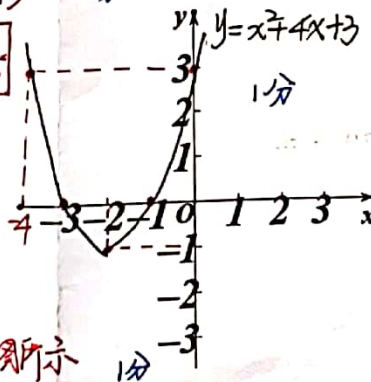 y y=x²+4x+3
3
1分
2
1
-4 -3 -2 -1 O 1 2 3 x
-1
-2
-3
图所示 1分